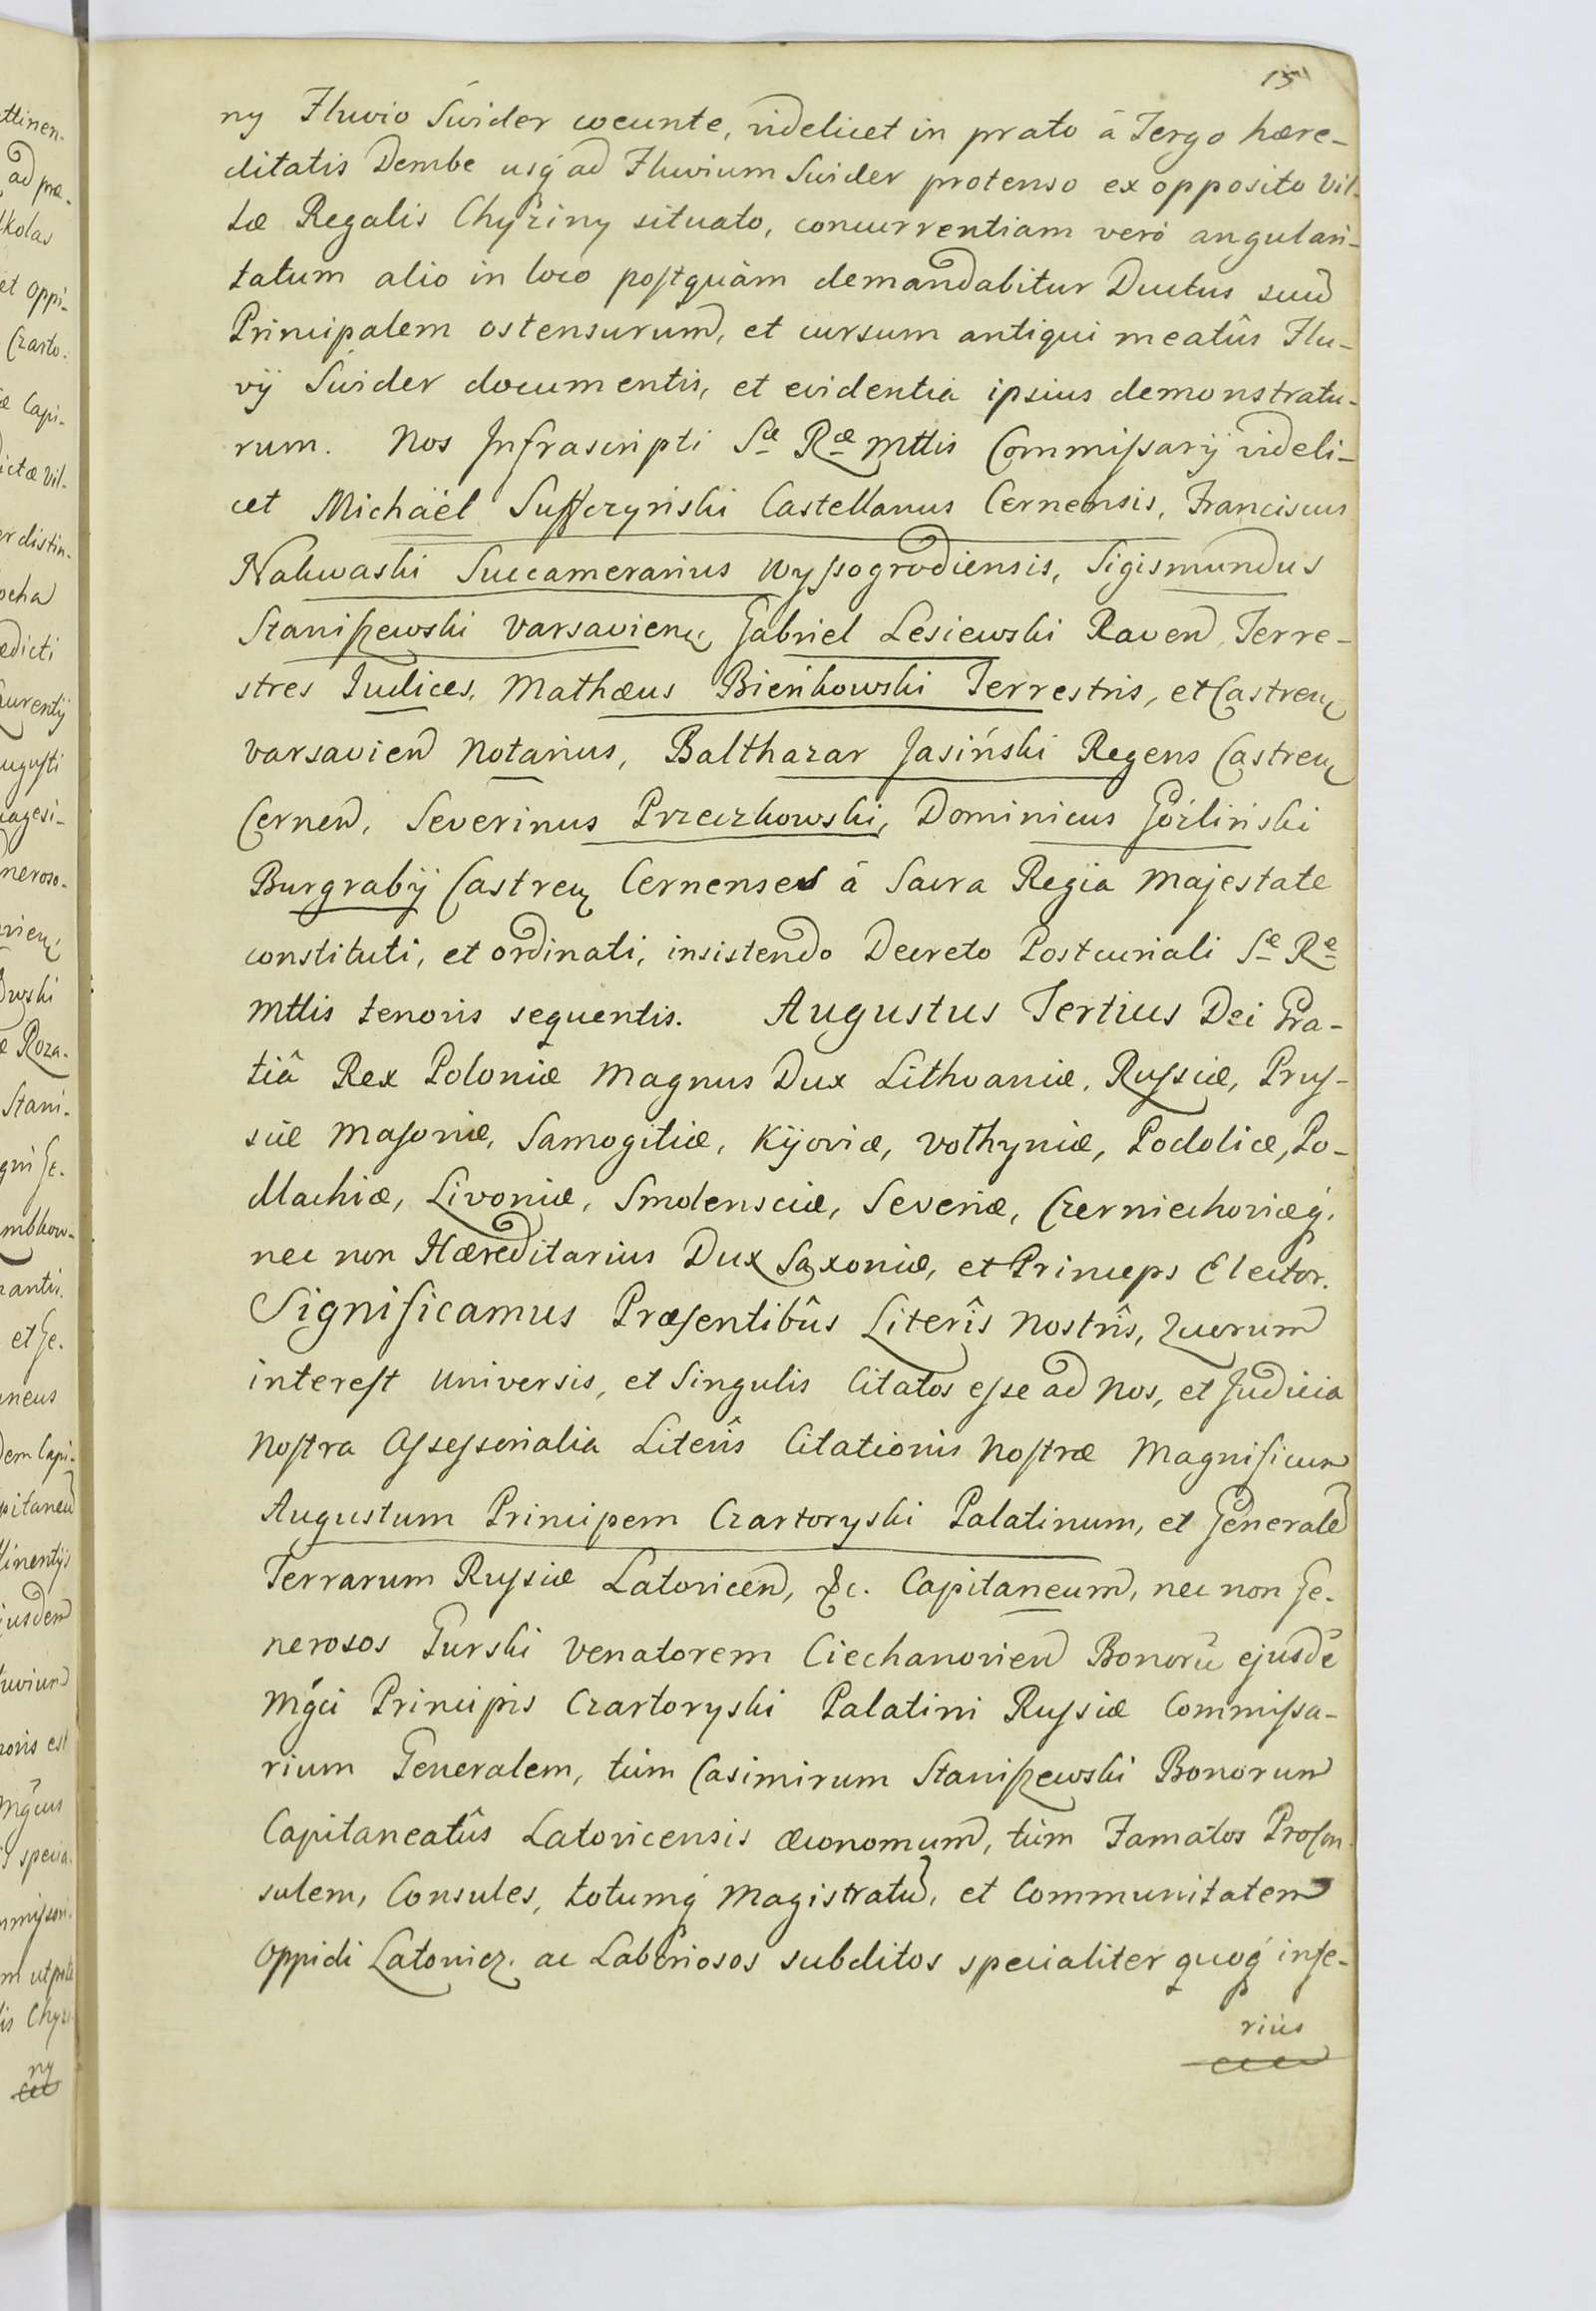 15
ny Fluvio Swider coeunte, videlicet in prato â Tergo hære-
ditatis Dembe usq́ ad Fluvium Swider protenso ex opposito Vil-
læ Regalis Chyżiny situato, concurrentiam verò angulari-
tatum alio in loco postquàm demandabitur Ductus suū
Principalem ostensurum, et cursum antiqui meatûs Flu-
vij Swider documentis, et evidentia ipsius demonstratu-
rum. Nos Infrascripti Sæ Ræ Mttis Commissarij videli-
cet Michaël Suffczyński Castellanus Cernensis, Franciscus
Nakwaski Succamerarius Wyssogrodiensis, Sigismundus
Staniszewski Varsavien, Gabriel Lesiewski Raven, Terre-
stres Judices, Mathæus Bieńkowski Terrestris, et Castren
Varsavien Notarius, Balthazar Jasiński Regens Castren
Cernen, Severinus Przeczkowski, Dominicus Góźliński
Burgrabij Castren Cernenses â Sacra Regia Majestate
constituti, et ordinati, insistendo Decreto Postcuriali Sæ Ræ
Mttis tenoris sequentis. Augustus Tertius Dei Gra-
tiâ Rex Poloniæ Magnus Dux Lithvaniæ, Russiæ, Prus-
siæ Masoviæ, Samogitiæ, Kijoviæ, Volhyniæ, Podoliæ, Po-
dlachiæ, Livoniæ, Smolensciæ, Severiæ, Czerniechoviæq́,
nec non Hæreditarius Dux Saxoniæ, et Princeps Elector.
Significamus Præsentibûs Literîs Nostrîs, Quorum
interest Universis, et Singulis Citatos esse ad Nos, et Judicia
Nostra Assessorialia Literîs Citationis Nostræ Magnificum
Augustum Principem Czartoryski Palatinum, et Generalē
Terrarum Russiæ Latovicen, &c. Capitaneum, nec non Ge-
nerosos Gurski Venatorem Ciechanovien Bonorū ejusdē
Mgci Principis Czartoryski Palatini Russiæ Commissa-
rium Generalem, tùm Casimirum Staniszewski Bonorum
Capitaneatûs Latovicensis œconomum, tùm Famatos Procon-
sulem, Consules, totumq́ Magistratū, et Communitatem
Oppidi Latovicz. ac Laboriosos subditos specialiter quoq́ infe-
riùs